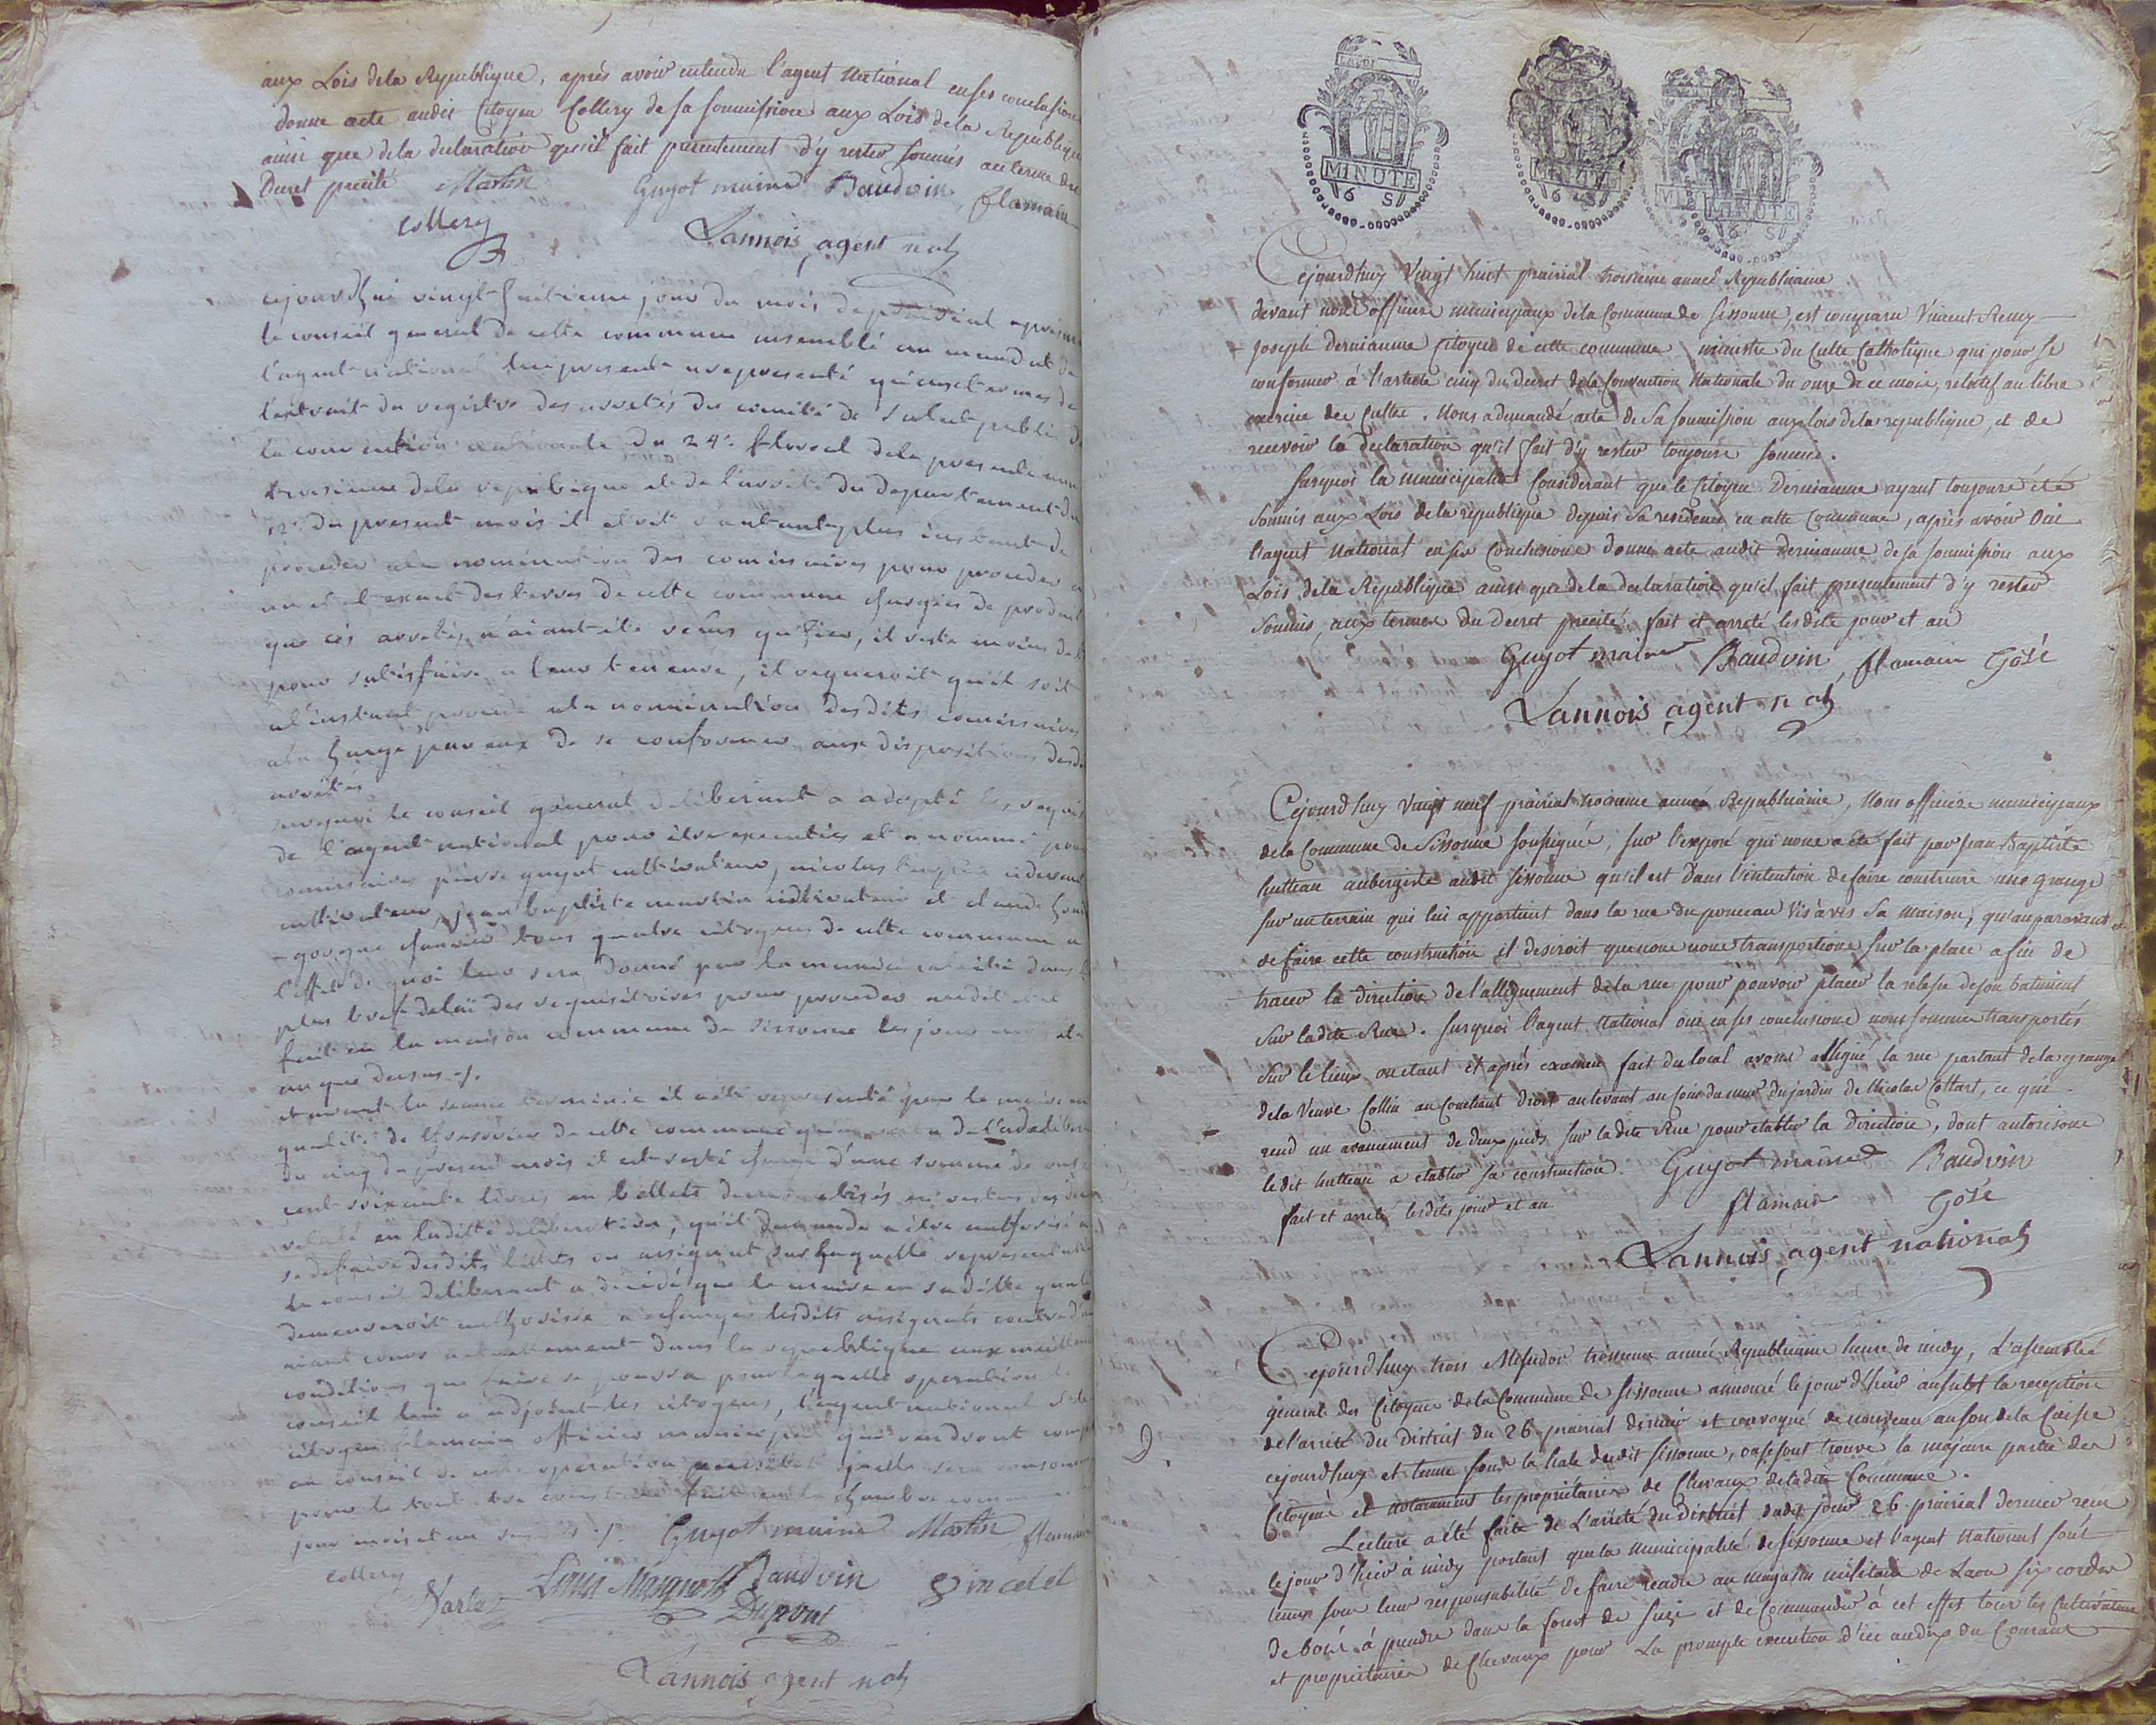 aux Lois dela Republique, après avoir entendu l'agent National enses conclusions
donne acte audit Citoyen Collery de sa soumission aux Lois dela Republique
ainsi que dela declaration qu'il fait presentement d'y rester soumis au terme du
Decret precité Martin Guyot maire Baudoin, flamain
Collery Lannois agent nat
cejourdhui vingt huitieme jour du mois de prairial
le conseil general de cette commune assemblé au mandat de
l'agent national lui present a representé qu'aux termes de
l'extrait du registre des arretés du comité de salut public de
la convention nationale du 24e floreal dela presente année
troisieme dela republique et de l'arrêté du departement du
12e du present mois il etoit d'autant plus instant de
proceder ala nomination des comissaires pour proceder a
un etat exact des terres de cette commune chargées de
que ces arretés n'aiant été reçus qu'hier, il reste moins de
pour satisfaire a leur teneure, il requeroit qu'il soit
al'instant procedé ala nomination desdits comissaires
ala charge par eux de se conformer aux dispositions desd
arretés
surquoi le conseil general deliberant a adopté les
de l'agent national pour être executées et a nommé pour
comissaires pierre guyot cultivateur, nicolas
cultivateur, jean baptiste martin cultivateur et claude
tous quatre citoyens de cette commune a
l'effet de quoi leur sera donné par la municipalité dans le
plus bref delai des requisitoires pour proceder audit etat
fait en la maison commune de Sissonne les jour mois et
an que dessus ./.
et avant la seance terminée il a été representé par le maire en
qualité de de cette commune de la delibera
du cinq du present mois il est resté chargé d'une somme de
cent soixante livres en billets demonetisés
relaté en ladite deliberation, qu'il demande a être authorisé a
se defaire desdits billets ou assignat sur laquelle representation
le conseil deliberant a decidé que le maire en sadite qualité
demeureroit authorisé a echanger lesdits assignats contre d'
aiant cours actuellement dans la republique aux meilleures
conditions que faire se poura pour laquelle operation le
conseil lui a adjoint les citoyens, l'agent national et le
citoyen flamain officier municipal qui rendront compte
au conseil de cette operation aussitot quelle sera
pour le tout être fait en la chambre commune
jour mois et an ./. Guyot maire Martin flamain
Collery Varlet Louis Baudoin Gincelet
Dupont
Lannois agent nat
MINUTE
6 S
MINUTE
6 S
MINUTE
6 S
Cejourdhuy Vingt huit prairial troisieme année Republicaine
devant nous officiers municipaux dela Commune de Sissonne, est comparu Vincent Remy
Joseph Dernianne Citoyen de cette commune ministre du Culte Catholique qui pour se
conformer à l'article cinq du Decret dela Convention Nationale du onze de ce mois, relatif au libre
exercice des Cultes. Nous a demandé acte de Sa soumission aux lois dela republique, et de
recevoir la declaration qu'il fait d'y rester toujours soumis.
Surquoi la municipalité Considerant que le Citoyen Dernianne ayant toujours été
soumis aux Lois dela republique depuis Sa residence en cette Commune, après avoir Oui
l'agent National en ses Conclusions donne acte audit Dernianne de sa soumission aux
Lois dela Republique ainsi que dela declaration qu'il fait presentement d'y rester
soumis, aux termes du decret precité. fait et arrêté lesdits jour et an
Guyot maire Baudoin flamain Gosé
Lannois agent nat
Cejourdhuy Vingt neuf prairial troisieme année Republicaine, Nous officiers municipaux
dela Commune de Sissonne soussignés, sur l'exposé qui nous a été fait par jean Baptiste
hutteau aubergiste audit Sissonne qu'il est dans l'intention defaire construire une grange
sur un terrain qui lui appartient dans la rue du ponceau Vis à vis Sa maison; qu'auparavant
de faire cette construction il desiroit que nous nous transportions sur la place afin de
tracer la direction del'allignement dela rue pour pouvoir placer la de son batiment
sur ladite Rue. Surquoi l'agent National oui en ses conclusions nous sommes transportés
Sur le lieu, ou etant et après examen fait du local avons alligné la rue partant dela grange
dela Veuve Collin au Couchant Droit au levant au Coin du mur du jardin de Nicolas Cottart, ce qui
rend un avancement de deux pieds sur ladite Rue pour etablir la direction, dont autorisons
ledit hutteau a etablir sa construction. Guyot maire Baudoin
fait et arrêté lesdits jour et an flamain Gosé
Lannois agent national
Cejourdhuy trois Messidor troisieme année Republicaine heure de midy, L'assemblée
general des Citoyens dela Commune de Sissonne annoncé le jour d'hier aussitot la reception
de l'arrêté du District du 26 prairial dernier et convoqué de nouveau au son dela Caisse
cejourdhuy et tenue sous la hale dudit Sissonne, ou se sont trouvé la majeure partie des
Citoyens et notamment les proprietaires de Chevaux deladite Commune.
Lecture a été faite de L'arrêté du District dudit jour 26 prairial dernier recu
le jour d'hier à midy portant que la municipalité de Sissonne et l'agent National sont
tenus sous leur responsabilité de faire rendre au magasin militaire de Laon six cordes
de bois à prendre dans la forest de Suzy et de Commander à cet effet tous les Cultivateurs
et proprietaires de Chevaux pour La prompte execution d'ici au dix du Courant